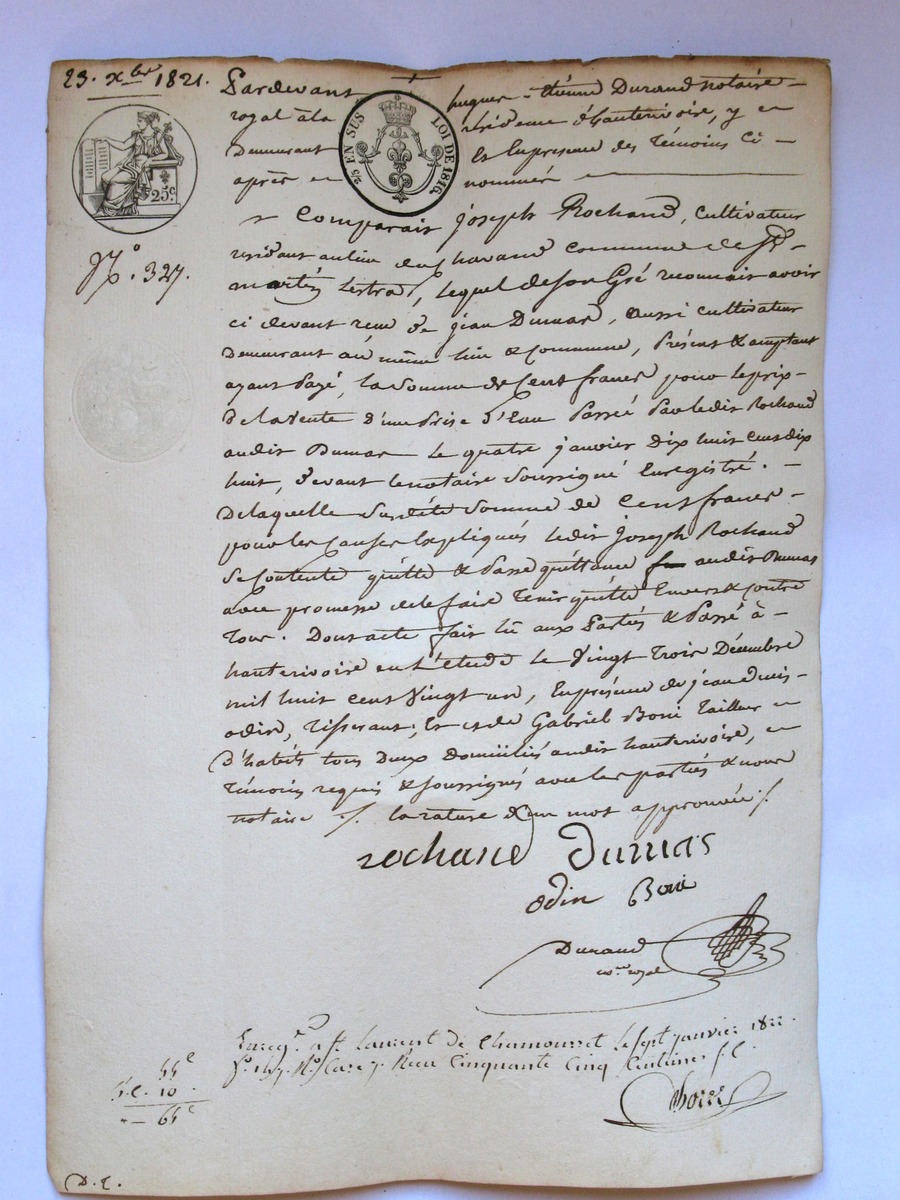 23. xbre 1821.
Pardevant hugues-étienne Durand notaire
royal à la résidence d'hauterivoire, y
Demeurant Et En présence des Témoins Ci-
après nommés
2/5 EN SUS LOI DE 1816.
25c.
No. 327.
Comparait joseph Rochand, Cultivateur
résidant au lieu de Chavand Commune de St
martin lestra, lequel de son Gré reconnait avoir
ci devant reçu de jean Dumas, aussi Cultivateur
Demeurant au même lieu & Commune, Présent & acceptant
ayant Payé, la Somme de Cent francs pour le prix
De la Vente d'une Prise d'Eau Passée Par ledit Rochand
audit Dumas le quatre janvier Dix huit Cent dix
huit, devant le notaire Soussigné Enregistré.
De laquelle Susdite Somme de Cent francs
pour les Causes Expliquées ledit joseph Rochand
Se Contente quitte & Passe quittance audit Dumas
avec promesse de le faire Tenir quitte Envers & Contre
Tous. Dont acte fait lû aux Parties & Passé à
hauterivoire en l'étude le Vingt Trois Décembre
mil huit cent Vingt un, En présence de jean denis
odin, Tisserant; Et de Gabriel Boni Tailleur
D'habits tous Deux Domiciliés audit hauterivoire,
Témoins requis & Soussignés avec les parties & nous
notaire ./. la rature d'un mot approuvée ./.
rochand Dumas
odin Boni
Durand
nre royal
Enregé. a St. Laurent de Chamousset le sept janvier 1822.
Reçu Cinquante Cinq Centimes
55c
10
65c
D. C.